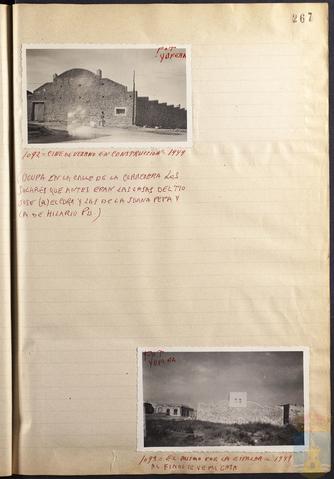 267
FOT
YUPERA
1092 = CINE DE VERANO EN CONSTRUCCION = 1949
OCUPA EN LA CALLE DE LA CORREDERA LOS
SOLARES QUE ANTES ERAN LAS CASAS DEL TIO
JOSE (A) EL CURA Y DE LA JUANA PEPA Y
LA DE HILARIO
FOT
YUPERA
1093 = EL MISMO POR LA ESPALDA = 1949
AL FINAL SE VE MI CASA